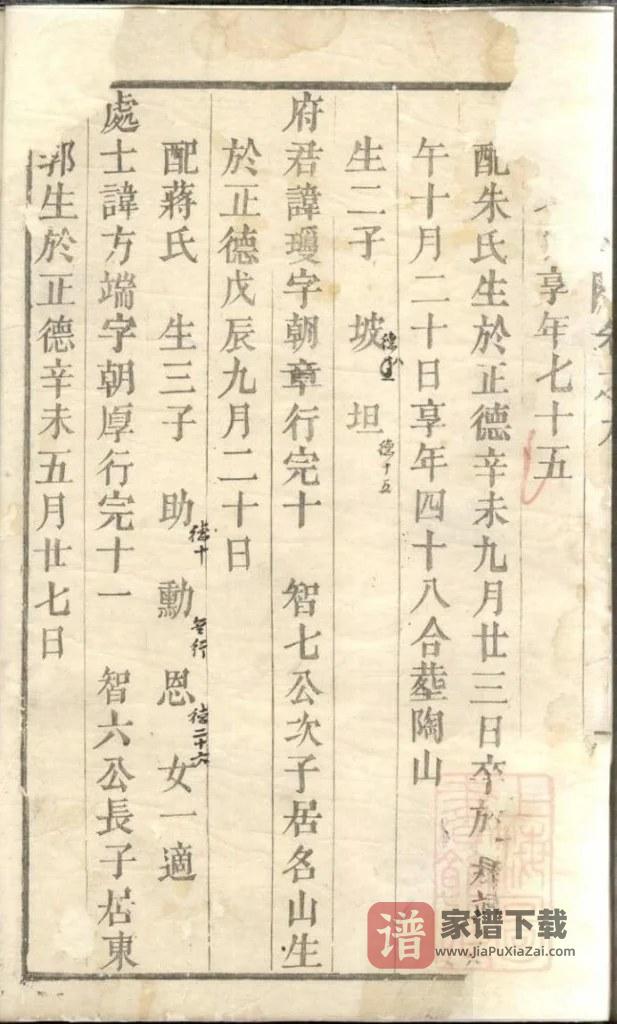 享年七十五
配朱氏生於正德辛未九月廿三日卒於
午十月二十日享年四十八合塟陶山
生二子 坡 坦德十五
府君諱瓊字朝章行完十 智七公次子居名山生
於正德戊辰九月二十日
配蔣氏 生三子 助德十 勳無行 恩德二十六 女一適
處士諱方端字朝厚行完十一 智六公長子居東
郭生於正德辛未五月廿七日
谱 家谱下载
www.JiaPuXiaZai.com